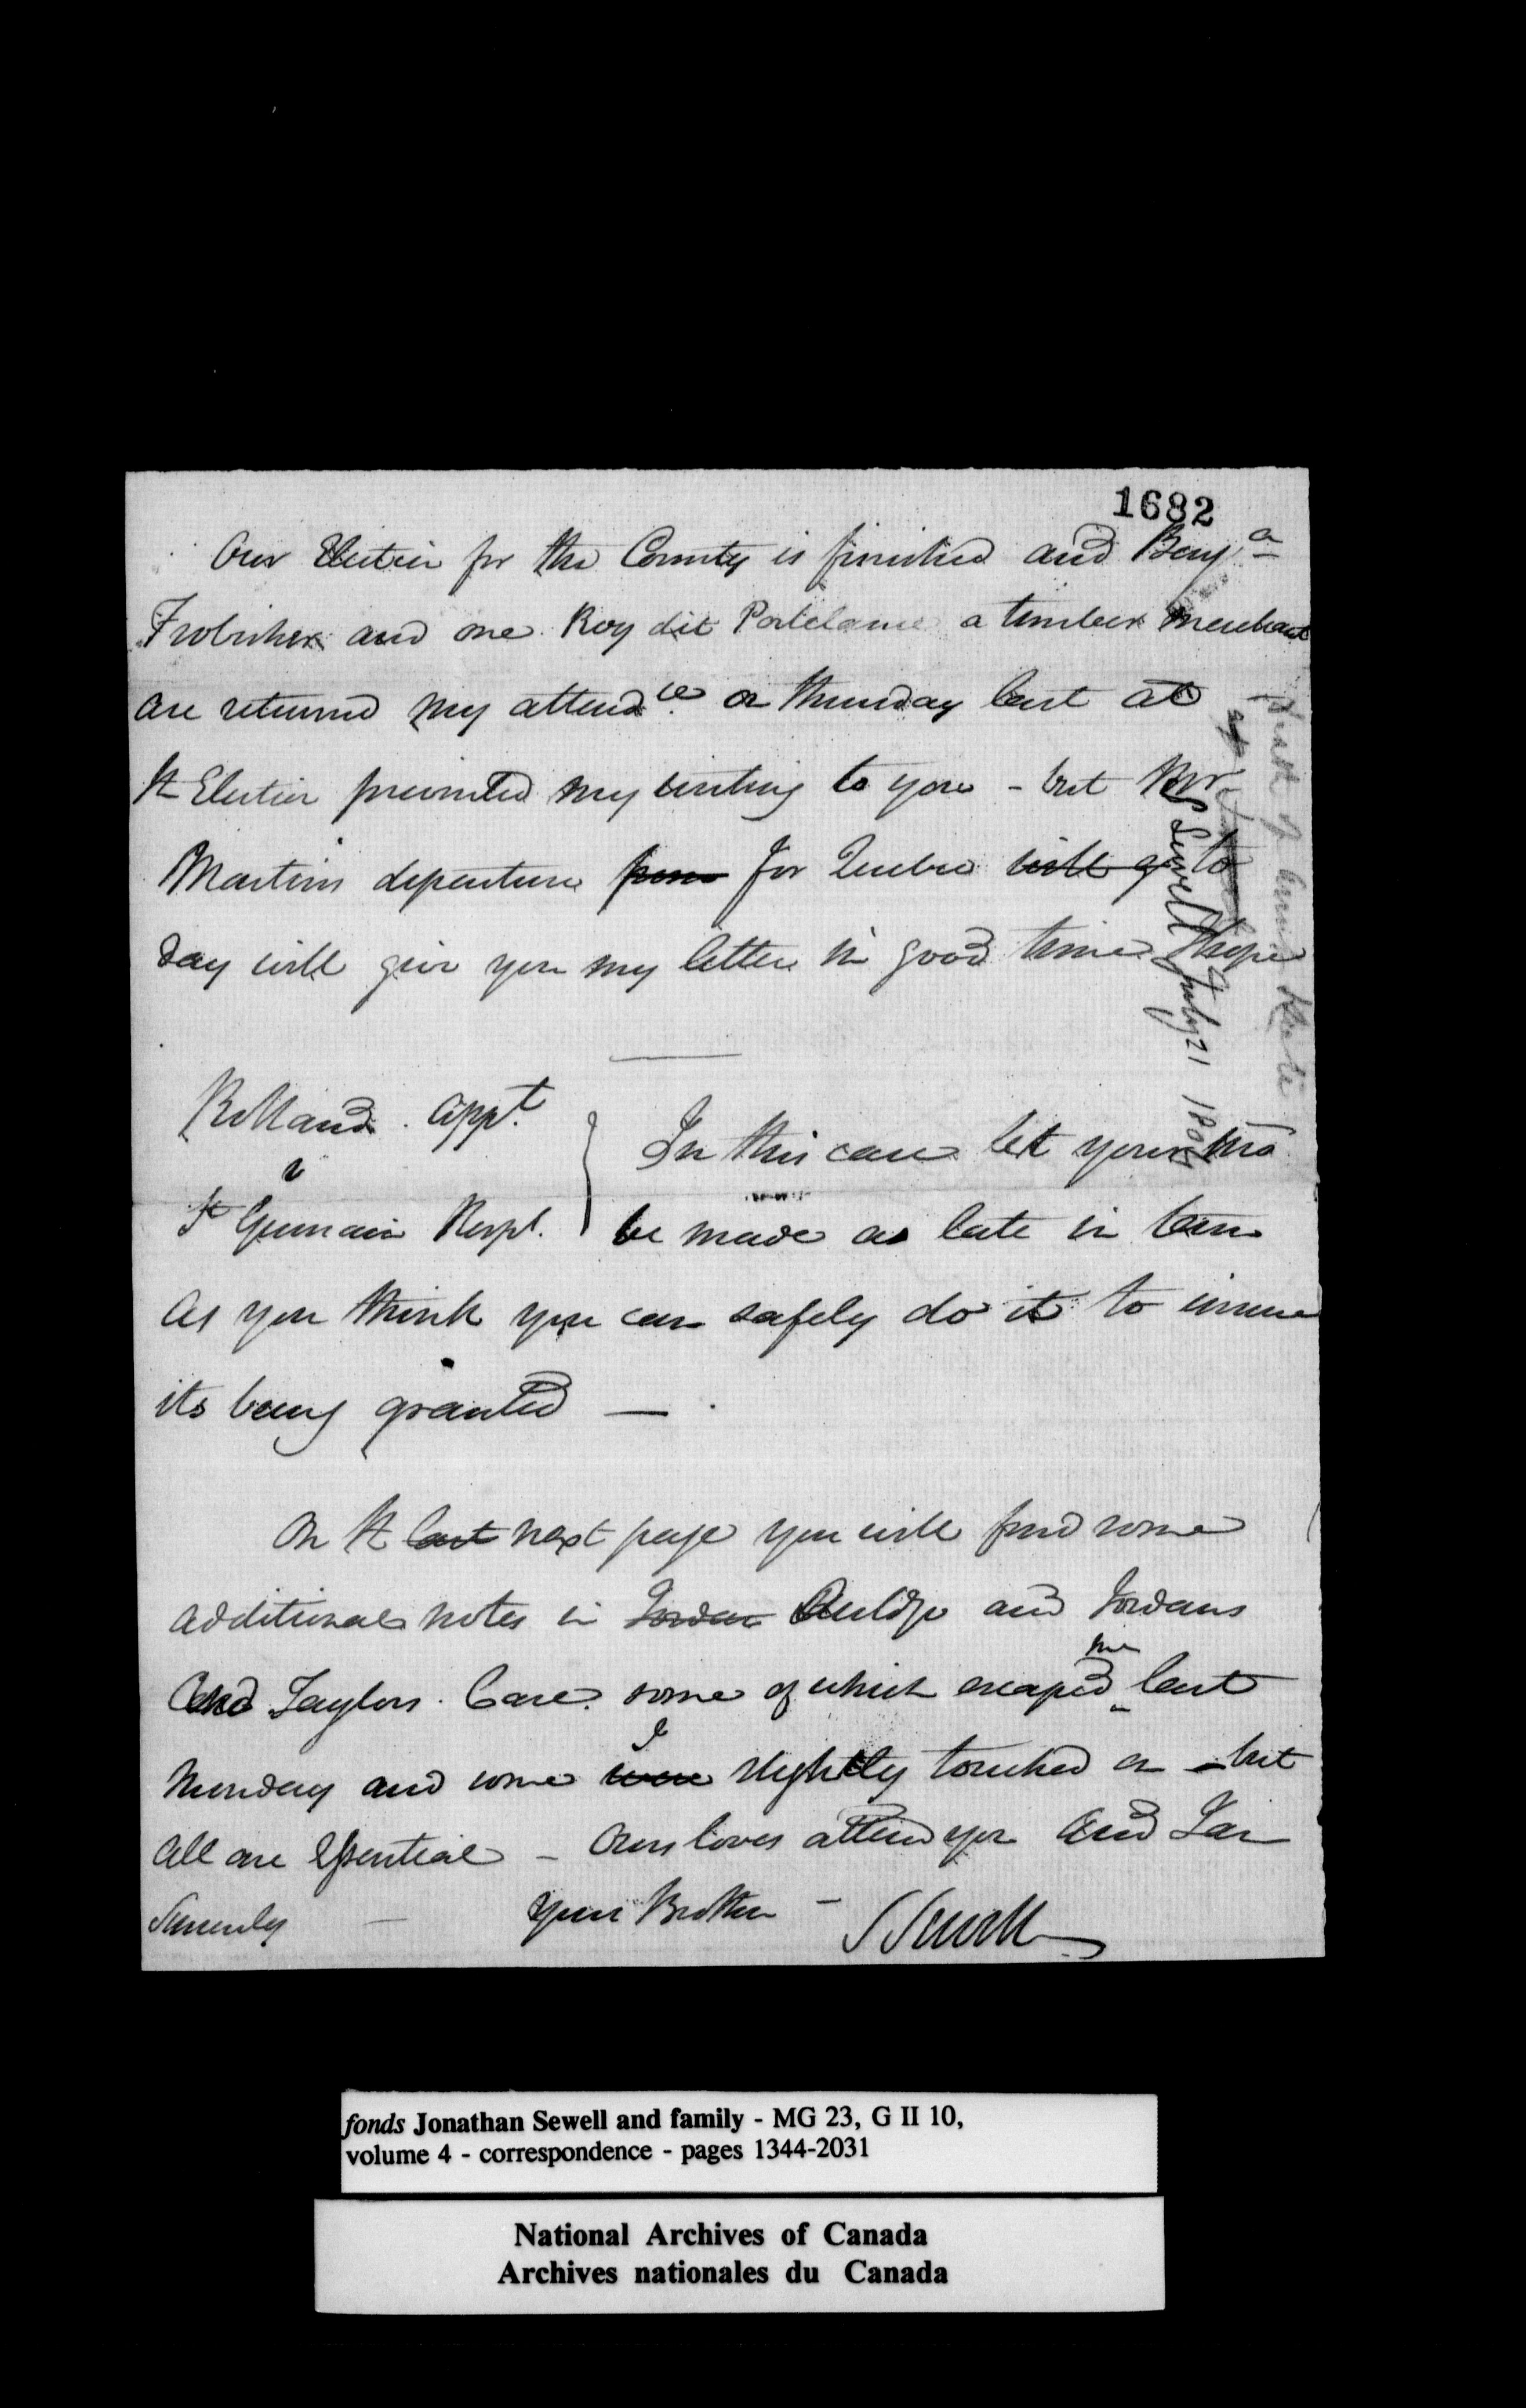 1682
Our Election for the County is finished and Benjn
Frobisher and one Roy dit Portelance a timber Merchant
are returned my attendce on thursday last at
St Election prevented my writing to you - but Mr
Martins departure from for Quebec will go to
day will give you my letter in good time I hope
S Sewell July 21 180
Rolland. Appt
v
St Germain Respt.
In this case let your mo
be made as late in term
as you think you can safely do it to insure
its being granted — .
On St last next page you will find some
additional notes in Jordan Auldjo and Jordans
and Taylors. Case. some of which escaped me last
Monday and some were I slightly touched on - but
all are Essential - Our loves attend you and
Sincerely — Your Brother - S Sewell
fonds Jonathan Sewell and family - MG 23, G II 10,
volume 4 - correspondence - pages 1344-2031
National Archives of Canada
Archives nationales du Canada